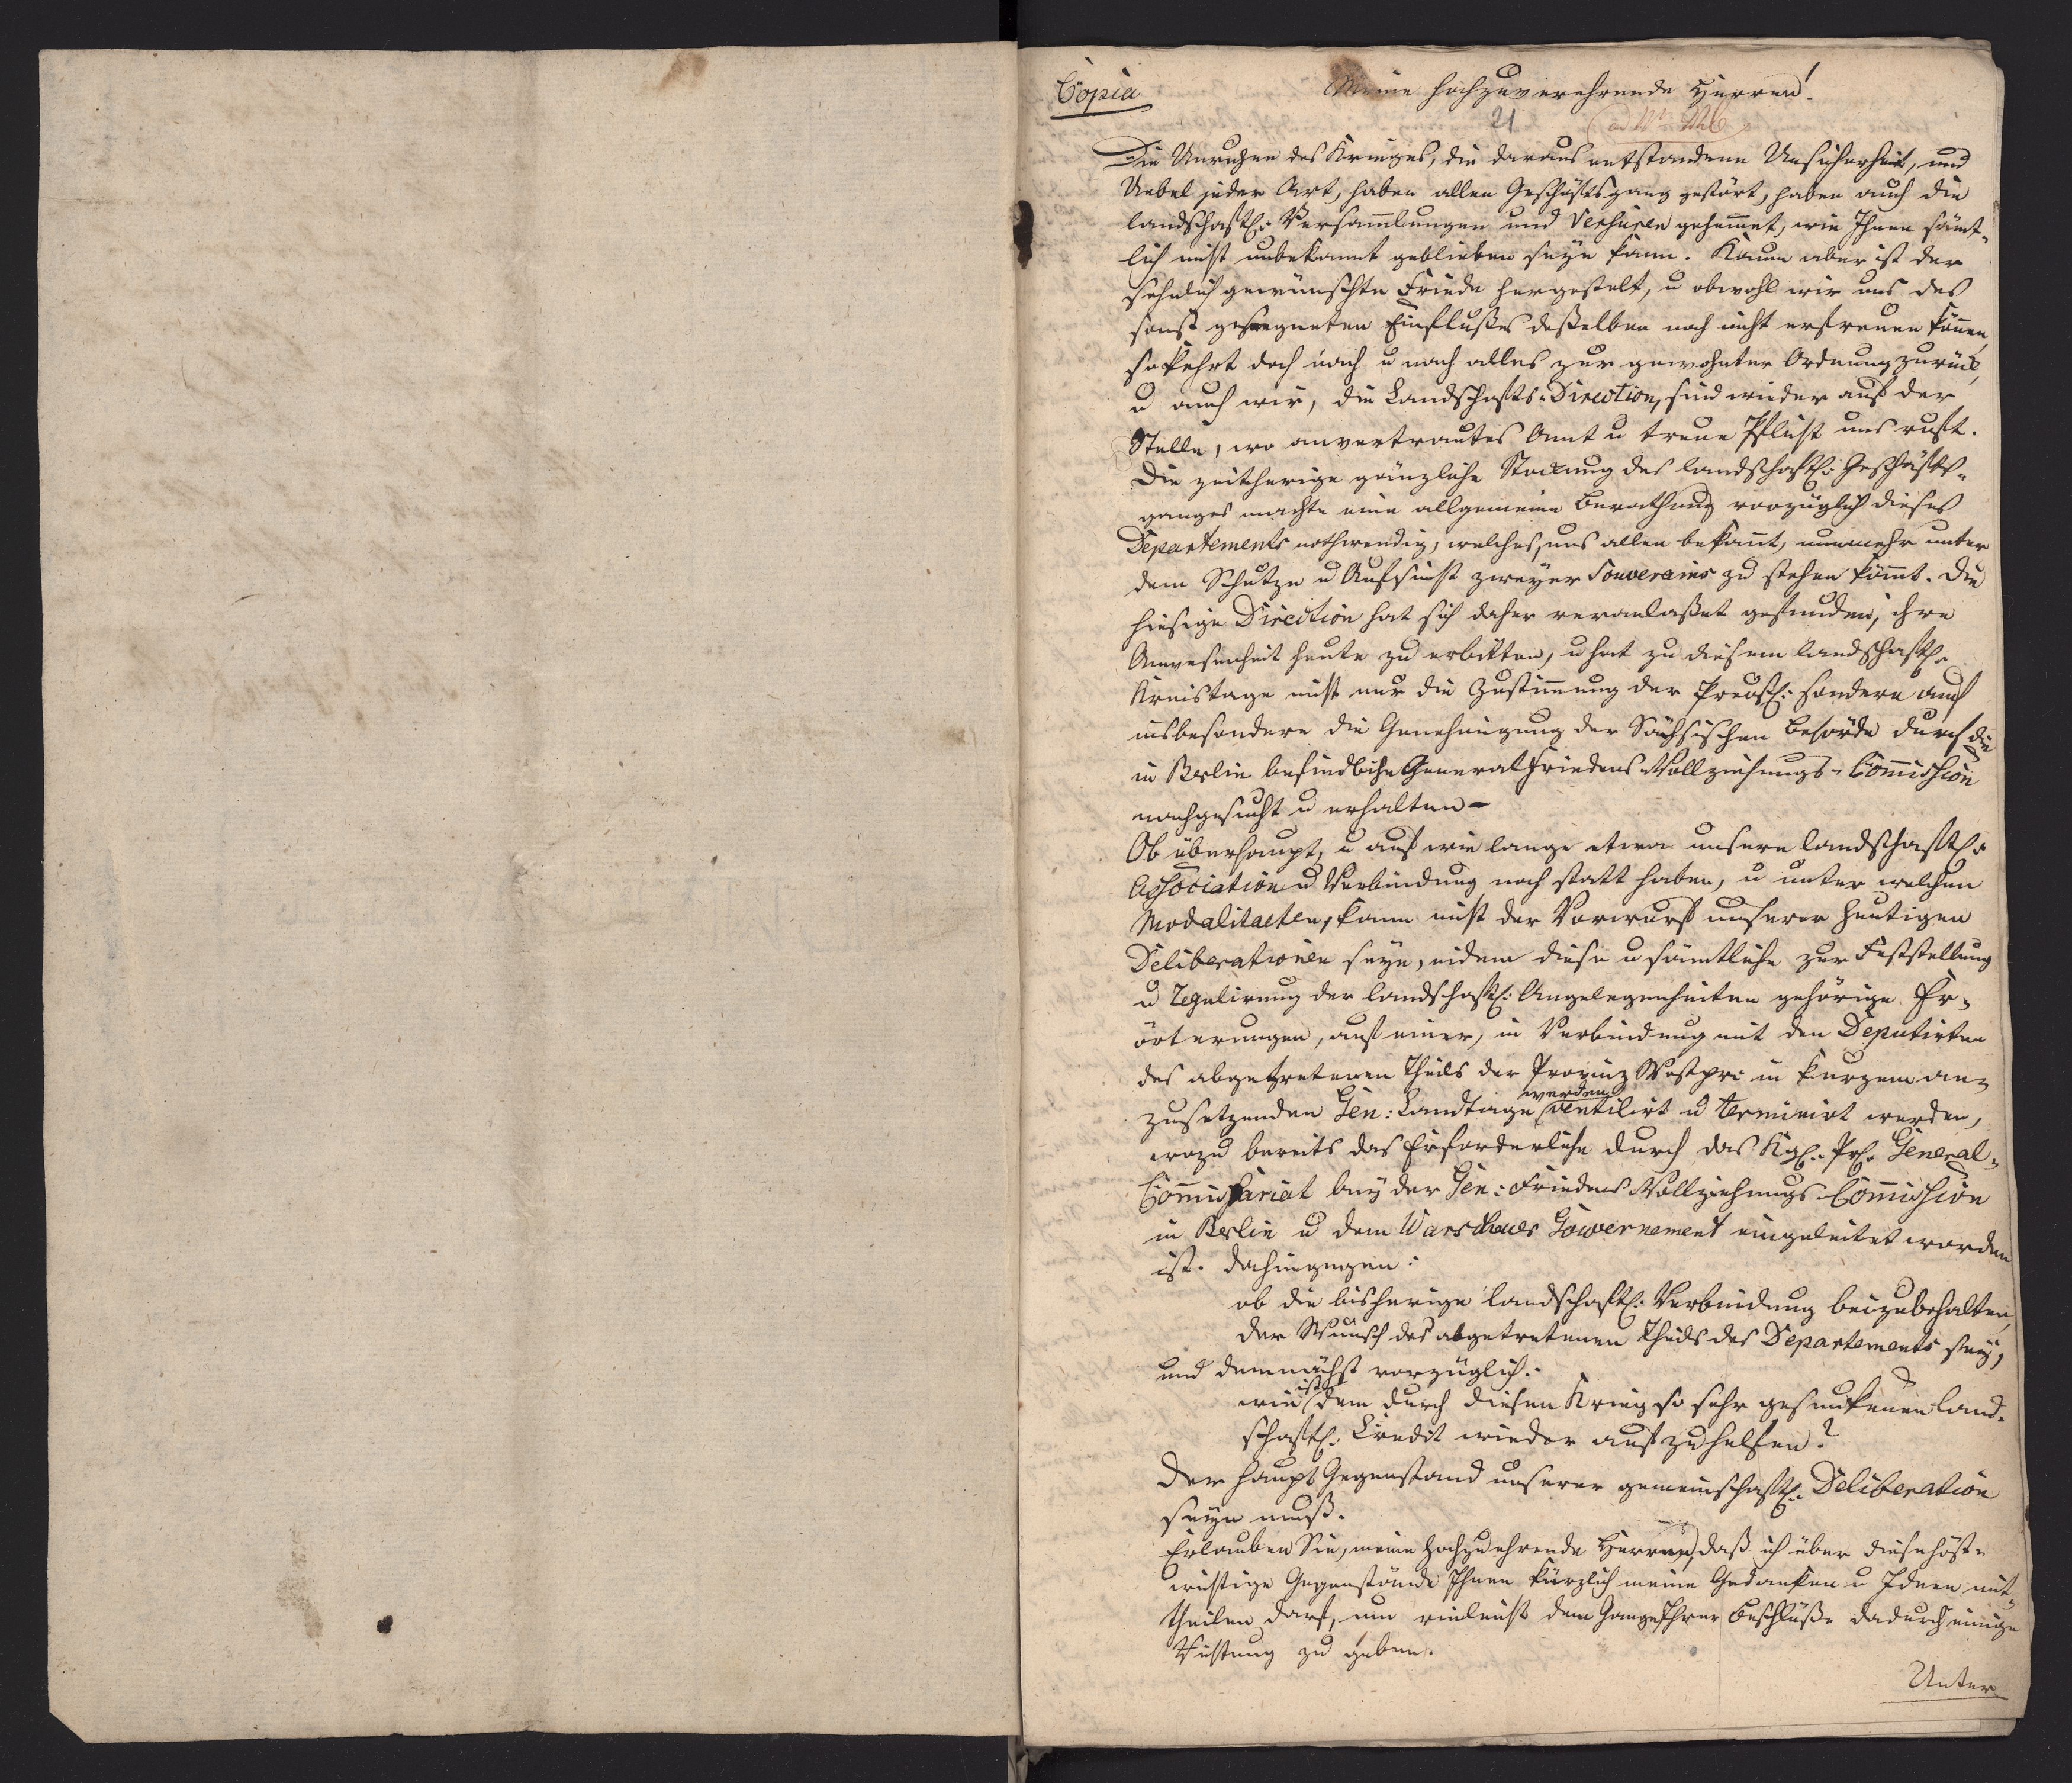 Copia
Meine hochzuverehrende Herren!
21
ad N.
Die Unruhen des Krieges, die daraus entstandene Unsicherheit, und
Uebel jeder Art, haben allen Geschäftsgang gestört, haben auch die
landschaftl: Versam̄lungen und gehem̄et, wie Ihnen sämt-
lich nicht unbekannt geblieben seyn kann. Kaum aber ist der
sehnlich gewünschte Friede hergestelt, u obwohl wir uns des
sonst gesegneten Einflußes deßelben noch nicht erfreuen kön̄en,
so kehrt doch nach u nach alles zur gewohnten Ordnung zurück,
u auch wir, die Landschafts-Direction, sind wieder auf der
Stelle, wo anvertrautes Amt u treue Pflicht uns ruft.
Die zeitherige gänzliche Stockung des landschaftl: Geschäfts-
ganges machte eine allgemeine Berathung vorzüglich dieses
Departements nothwendig, welches, uns allen bekan̄t, nunmehr unter
dem Schutze u Aufsicht zweyer Souverains zu stehen köm̄t. Die
hiesige Direction hat sich daher veranlaßet gefunden, ihre
Anwesenheit heute zu erbitten, u hat zu diesem landschaftl.
Kreistage nicht nur die Zustim̄ung der Preußl: sondern auch
insbesondere die Genehmigung der Sächsischen Behörde durch die
in Berlin befindliche General Friedens Vollziehungs-Com̄ission
nachgesucht u erhalten –
Ob überhaupt, u auf wie lange etwa unsere landschaftl.
Association u Verbindung noch statt haben, u unter welchen
Modalitaeten, kann nicht der Vorwurf unserer heutigen
Deliberationen seyn, indem diese u sämtliche zur Feststellung
u Regulirung der landschaftl: Angelegenheiten gehörige Er-
örterungen, auf einer, in Verbindung mit den Deputirten
des abgetretenen Theils der Provinz Westpr: in kurzem an-
zusetzenden Gen: Landtage werden ventilirt u terminirt werden,
wozu bereits das Erforderliche durch das Kgl. Pr. General-
Com̄issariat bey der Gen: Friedens Vollziehungs-Com̄ission
in Berlin u dem Warschauer Gouvernement eingeleitet worden
ist. Dahingegen:
ob die bisherige landschaftl: Verbindung beizubehalten,
der Wunsch des abgetretenen Theils des Departements sey,
und demnächst vorzüglich:
wie ist dem durch diesen Krieg so sehr gesunkenen land-
schaftl. Credit wieder aufzuhelfen?
Der Haupt Gegenstand unserer gemeinschaftl: Deliberation
seyn muß.
Erlauben Sie, meine Hochzuehrende Herren, daß ich über diese höst-
wichtige Gegenstände Ihnen kürzlich meine Gedanken u Ideen mit-
theilen darf, um vieleicht dem Gange Ihrer Beschlüße dadurch einige
Richtung zu geben.
Unter